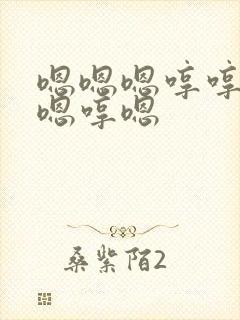 嗯嗯嗯哼哼
嗯哼嗯
桑紫陌2